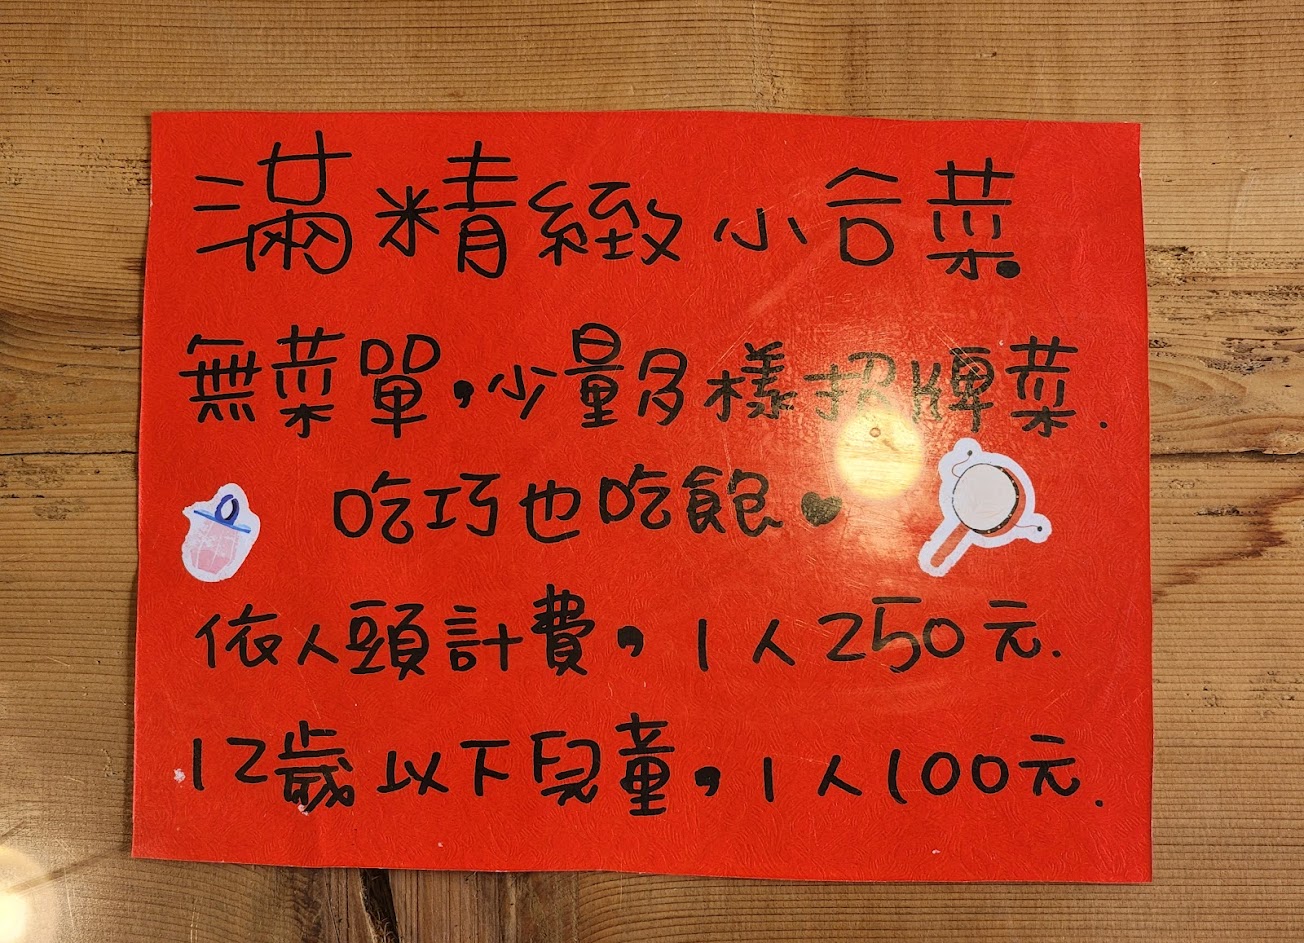 滿精緻小合菜.
無菜單,少量多樣招牌菜.
吃巧也吃飽♥
依人頭計費,1人250元.
12歲以下兒童,1人100元.